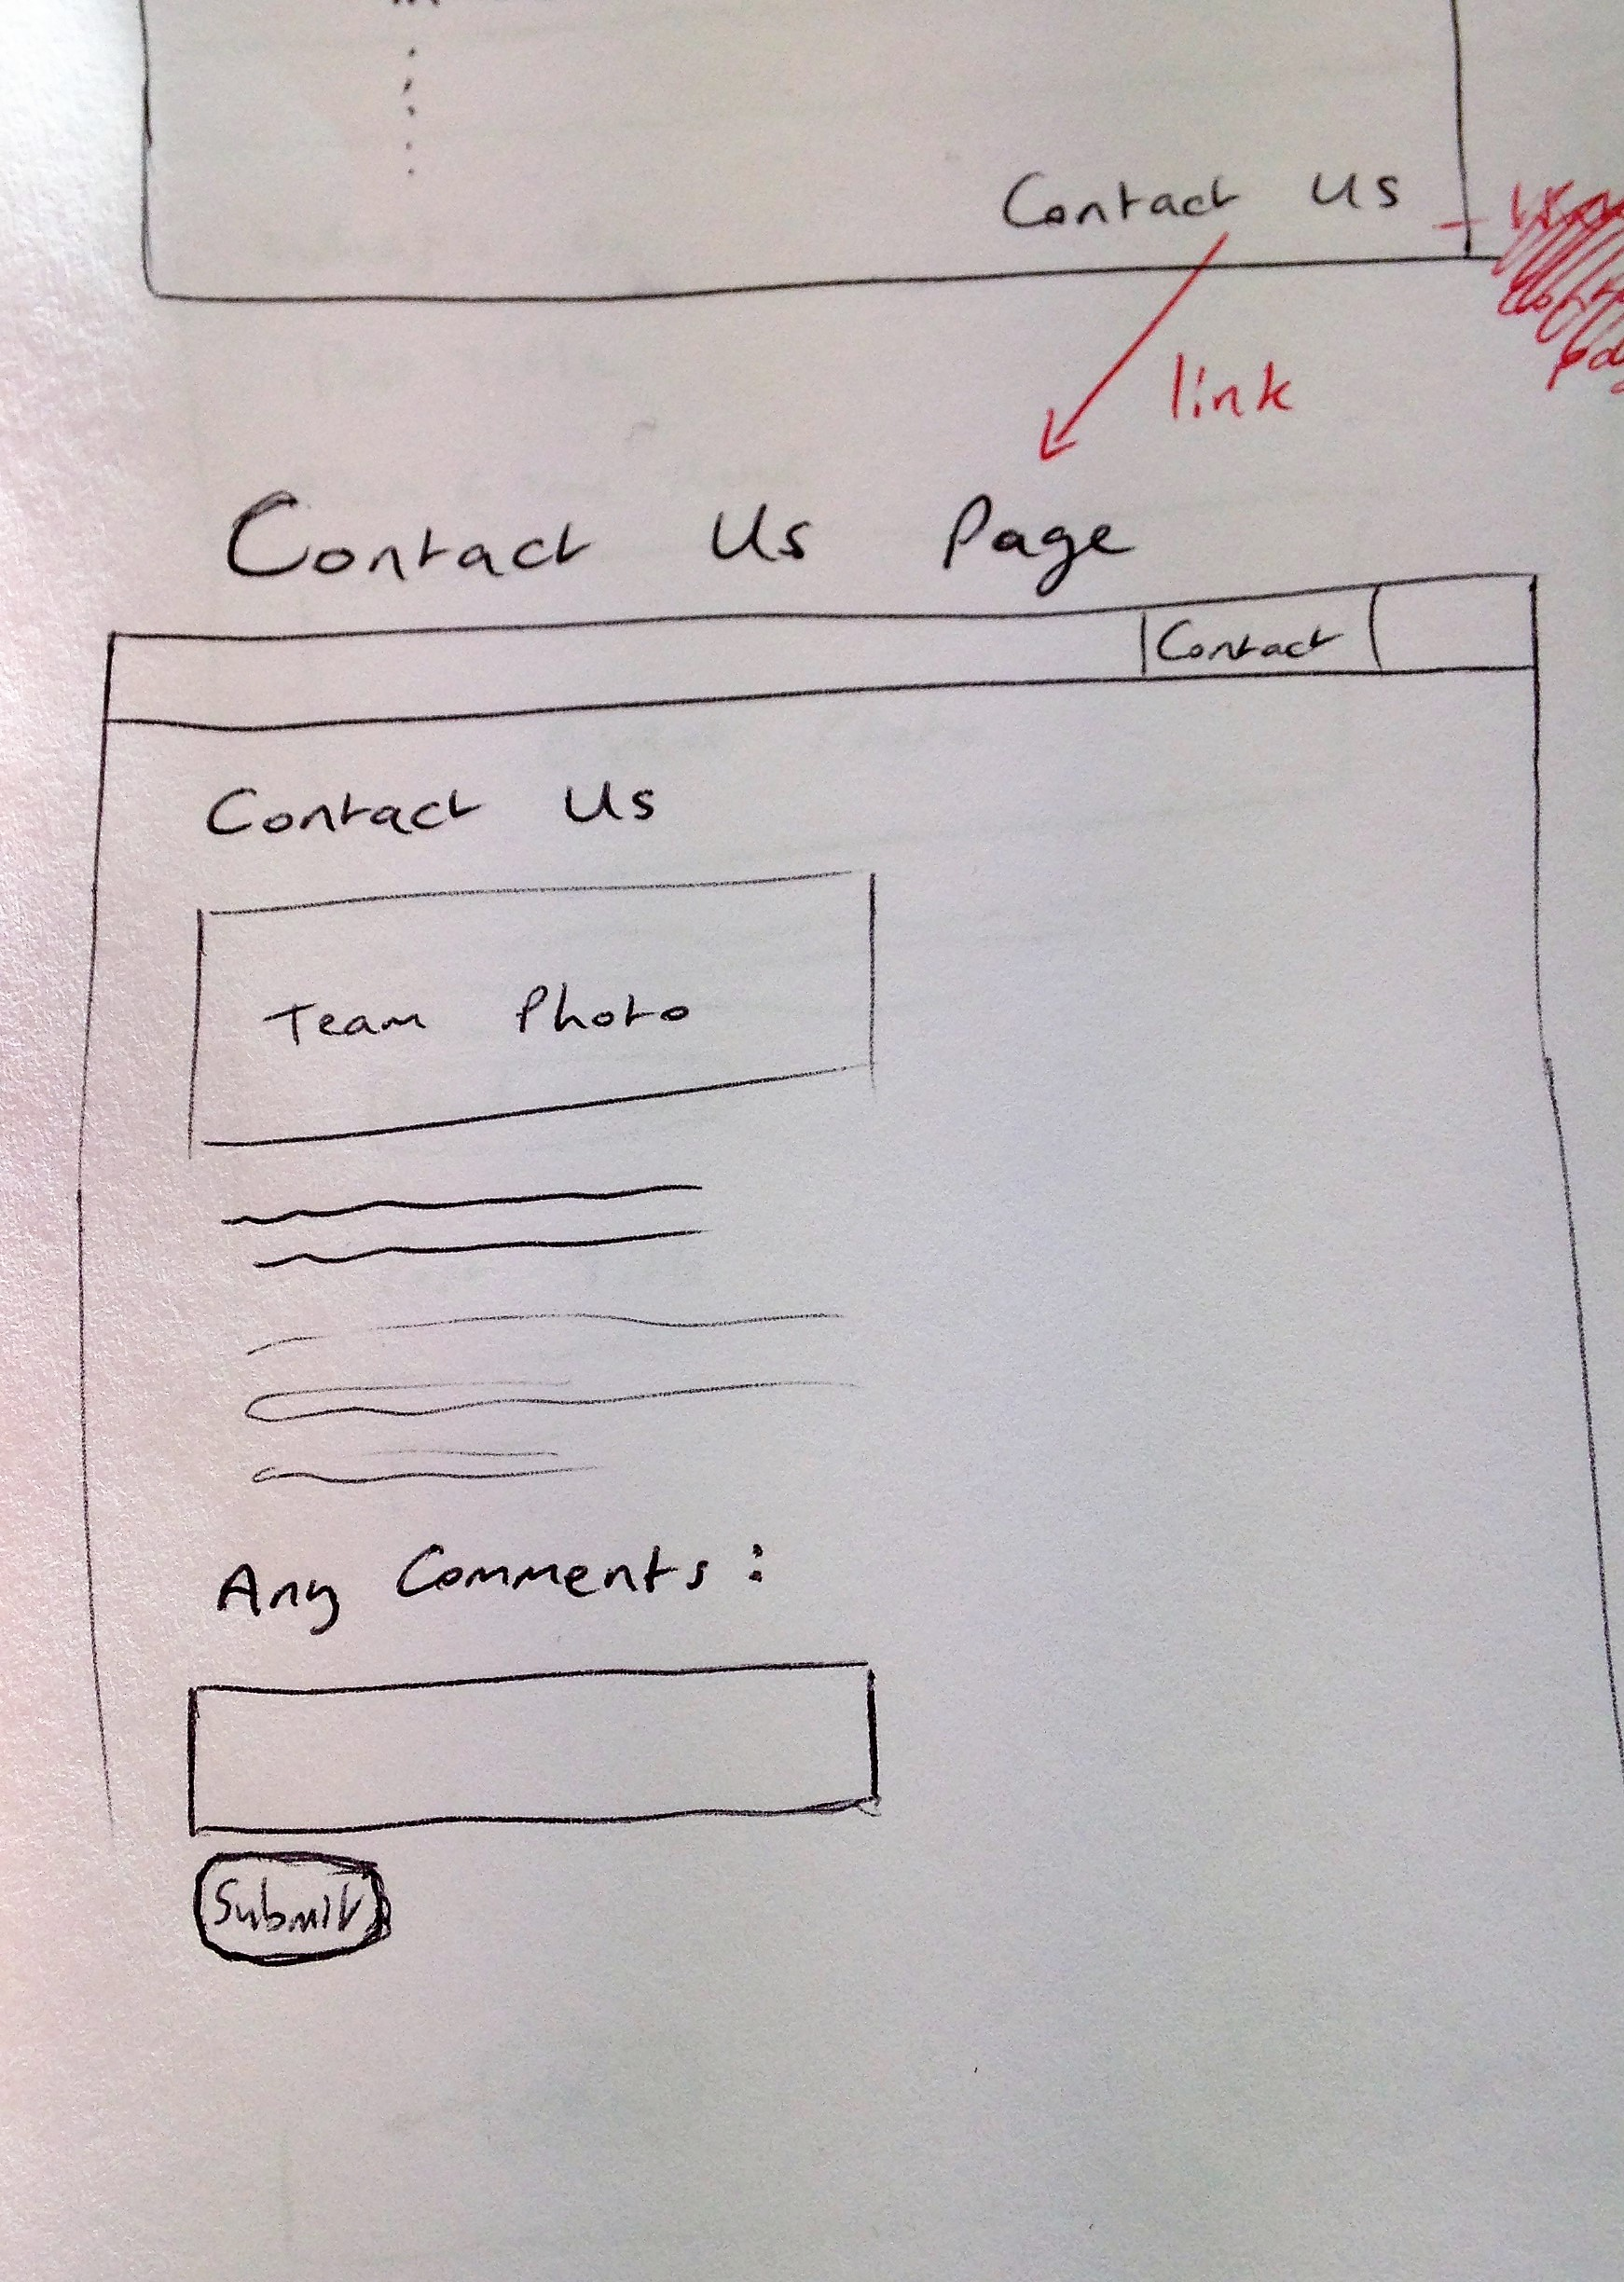 Contact Us
link
Contact Us Page
Contact
Contact Us
Team Photo
Any Comments:
Submit